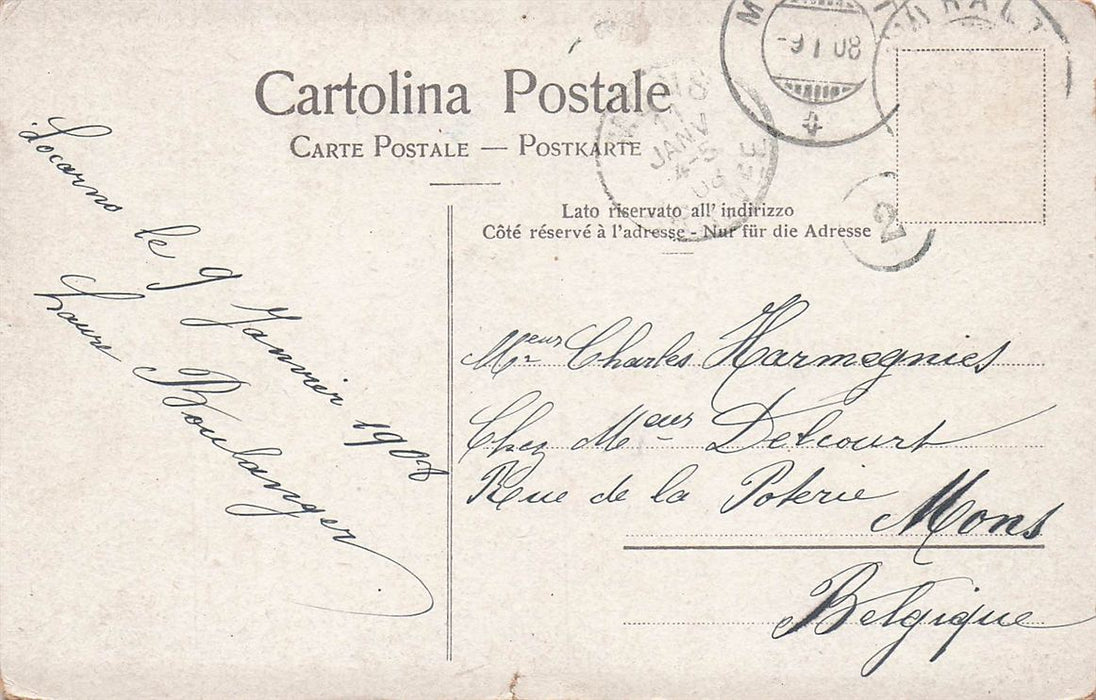 Cartolina Postale
CARTE POSTALE — POSTKARTE
Lato riservato all' indirizzo
Côté réservé à l'adresse - Nur für die Adresse
Locarno le 9 Janvier 1908
Laure Boulanger
Mr eur Charles Harmegnies
Chez Mr eur Delcourt
Rue de la Poterie
Mons
Belgique
-9 I 08
11
JANV
4-5
08
2